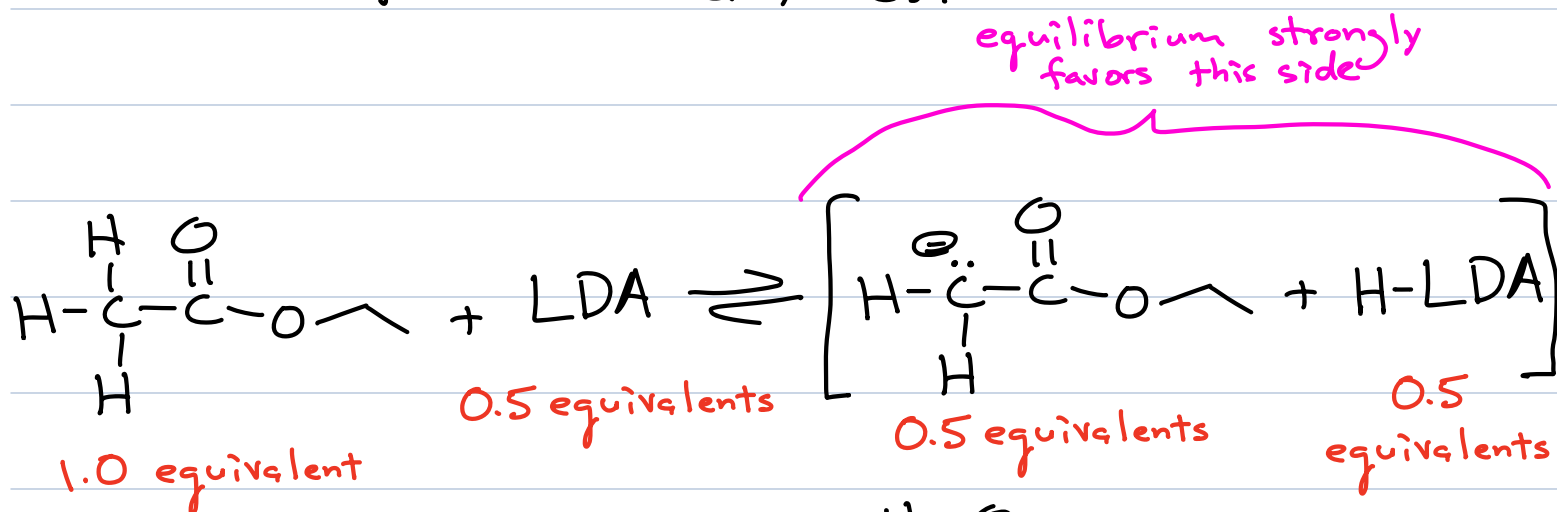 equilibrium strongly
favors this side
H O
H-C-C-O + LDA ⇌ [H-C-C-O + H-LDA]
H
O
⊖
H
1.0 equivalent
0.5 equivalents
0.5 equivalents
0.5
equivalents